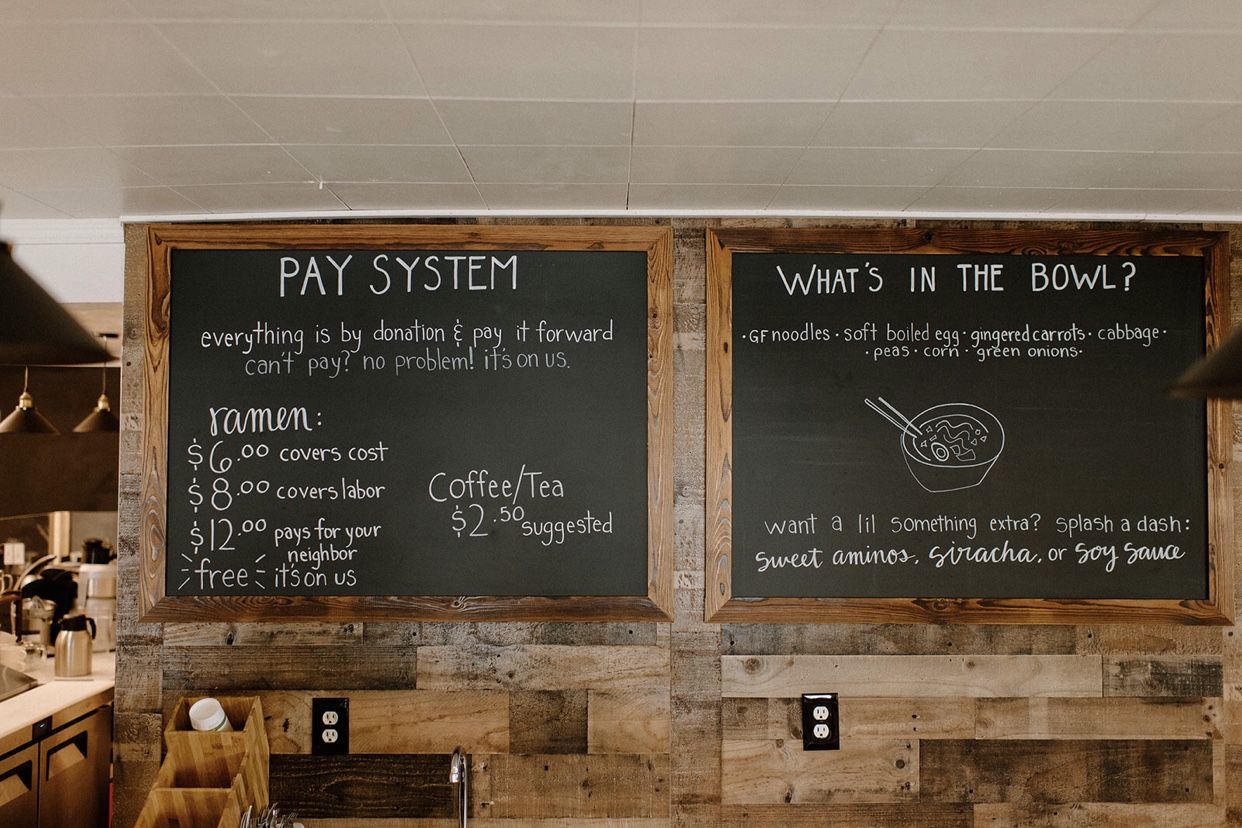 PAY SYSTEM
everything is by donation & pay it forward
can't pay? no problem! it's on us.
ramen:
$6.00 covers cost
$8.00 covers labor
$12.00 pays for your
neighbor
free it's on us
Coffee/Tea
$2.50 suggested
WHAT'S IN THE BOWL?
· GF noodles · soft boiled egg · gingered carrots · cabbage ·
· peas · corn · green onions ·
want a lil something extra? splash a dash:
sweet aminos, siracha, or soy sauce